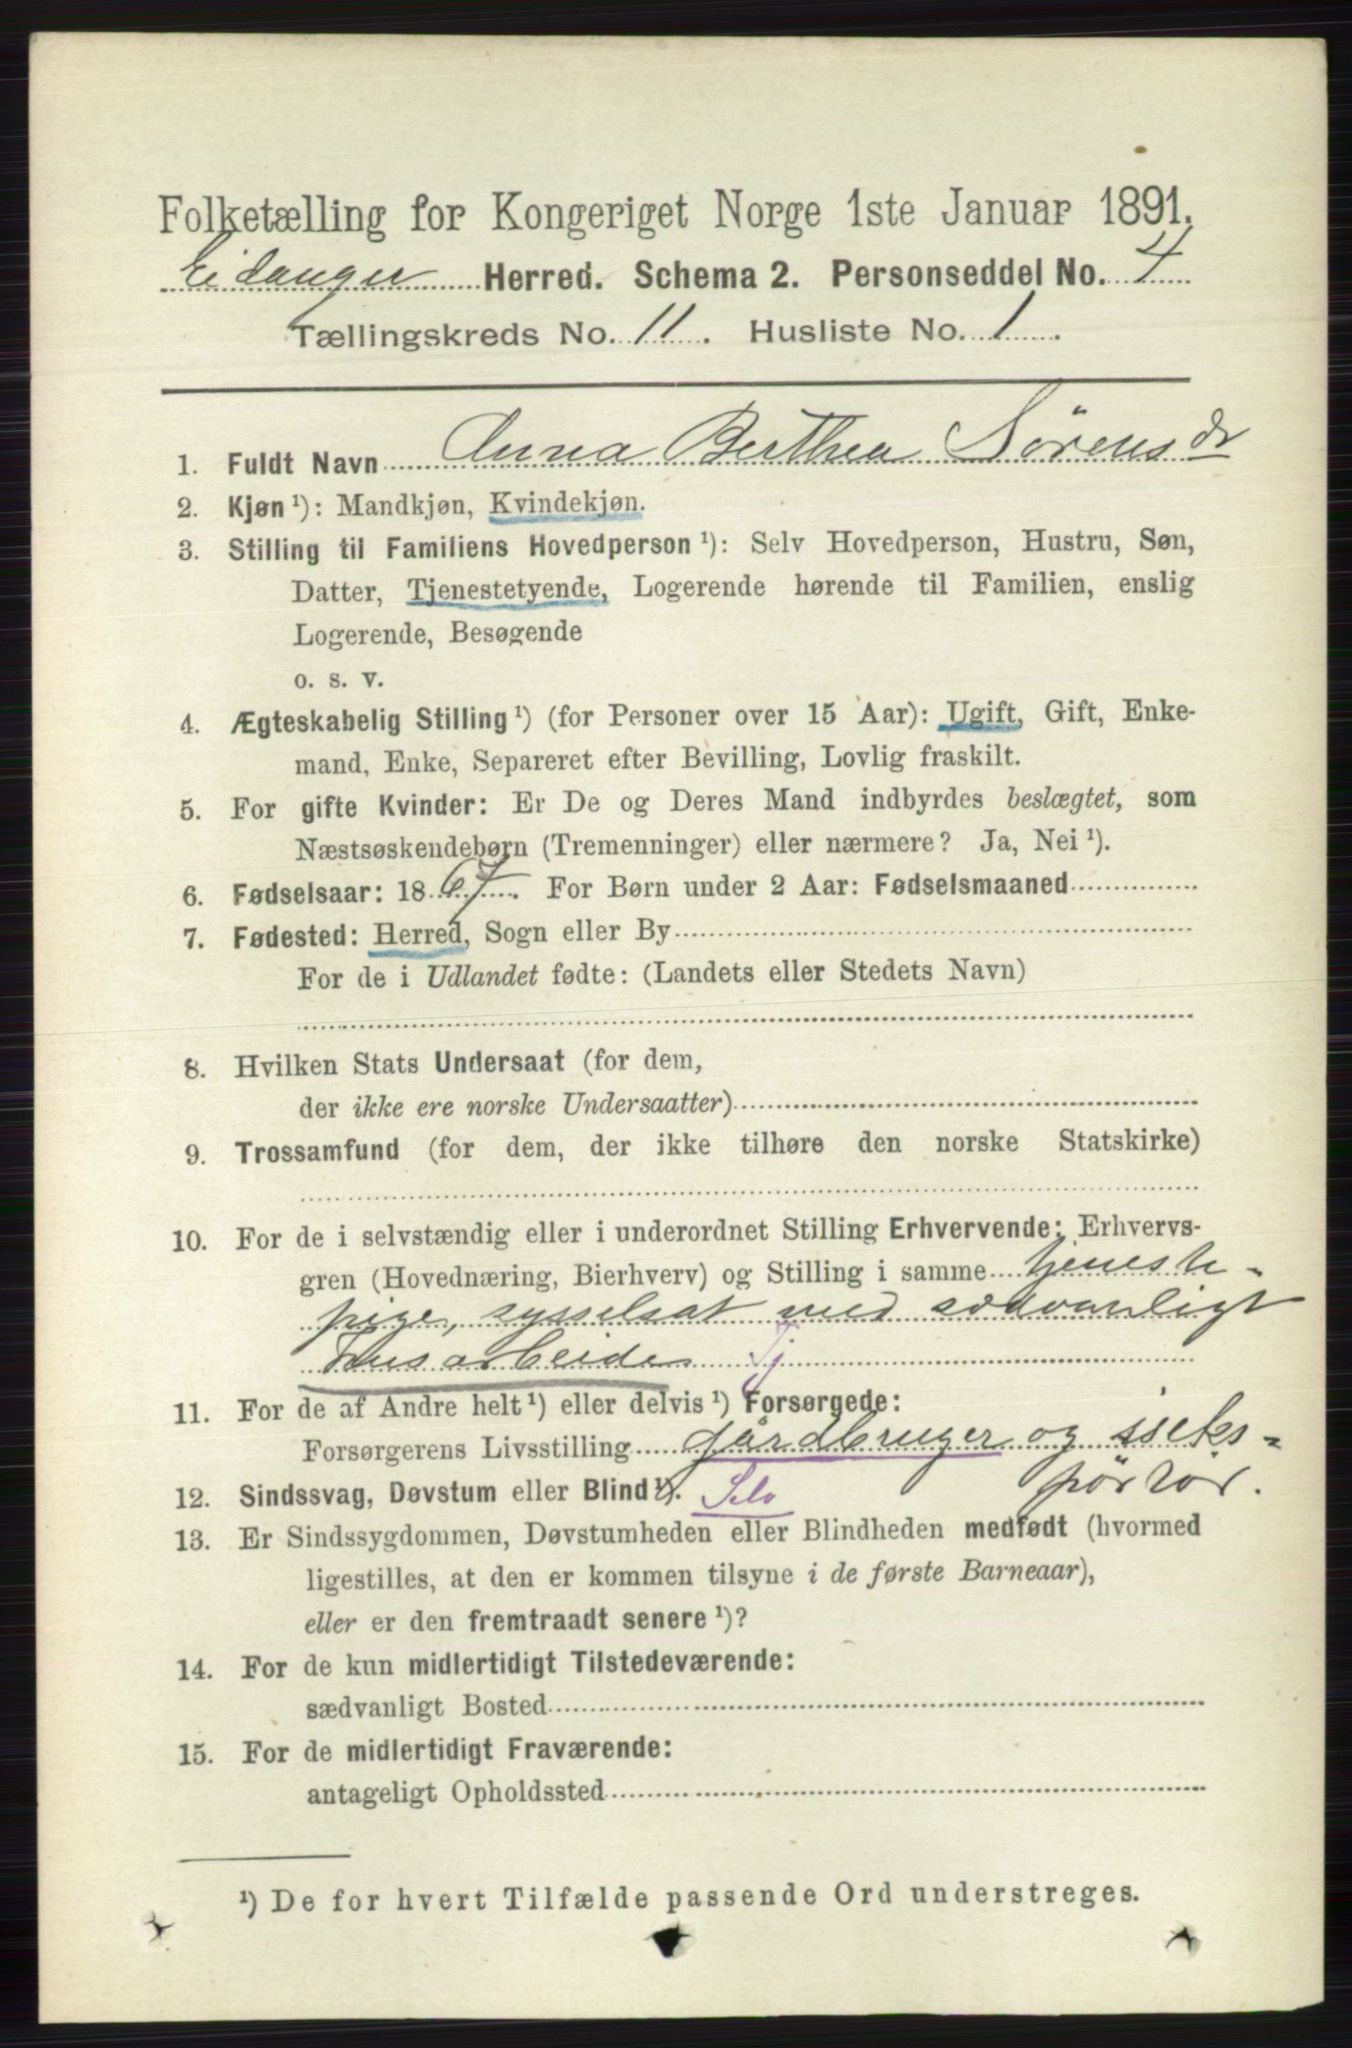 Folketælling for Kongeriget Norge 1ste Januar 1891.
Eidanger Herred. Schema 2. Personseddel No. 4
Tællingskreds No. 11. Husliste No. 1.
1. Fuldt Navn Anna Berthea Sörensdr
2. Kjøn ¹): Mandkjøn, Kvindekjøn.
3. Stilling til Familiens Hovedperson ¹): Selv Hovedperson, Hustru, Søn,
Datter, Tjenestetyende, Logerende hørende til Familien, enslig
Logerende, Besøgende
o. s. v.
4. Ægteskabelig Stilling ¹) (for Personer over 15 Aar): Ugift, Gift, Enke-
mand, Enke, Separeret efter Bevilling, Lovlig fraskilt.
5. For gifte Kvinder: Er De og Deres Mand indbyrdes beslægtet, som
Næstsøskendebørn (Tremenninger) eller nærmere? Ja, Nei ¹).
6. Fødselsaar: 1867. For Børn under 2 Aar: Fødselsmaaned
7. Fødested: Herred, Sogn eller By
For de i Udlandet fødte: (Landets eller Stedets Navn)
8. Hvilken Stats Undersaat (for dem,
der ikke ere norske Undersaatter)
9. Trossamfund (for dem, der ikke tilhøre den norske Statskirke)
10. For de i selvstændig eller i underordnet Stilling Erhvervende: Erhvervs-
gren (Hovednæring, Bierhverv) og Stilling i samme tjeneste-
pige, sysselsat med sædvanligt
husarbeide Tj
11. For de af Andre helt ¹) eller delvis ¹) Forsørgede:
Forsørgerens Livsstilling Gårdbruger og iseks-
pörtör.
12. Sindssvag, Døvstum eller Blind ¹). Selv
13. Er Sindssygdommen, Døvstumheden eller Blindheden medfødt (hvormed
ligestilles, at den er kommen tilsyne i de første Barneaar),
eller er den fremtraadt senere ¹)?
14. For de kun midlertidigt Tilstedeværende:
sædvanligt Bosted
15. For de midlertidigt Fraværende:
antageligt Opholdssted
¹) De for hvert Tilfælde passende Ord understreges.